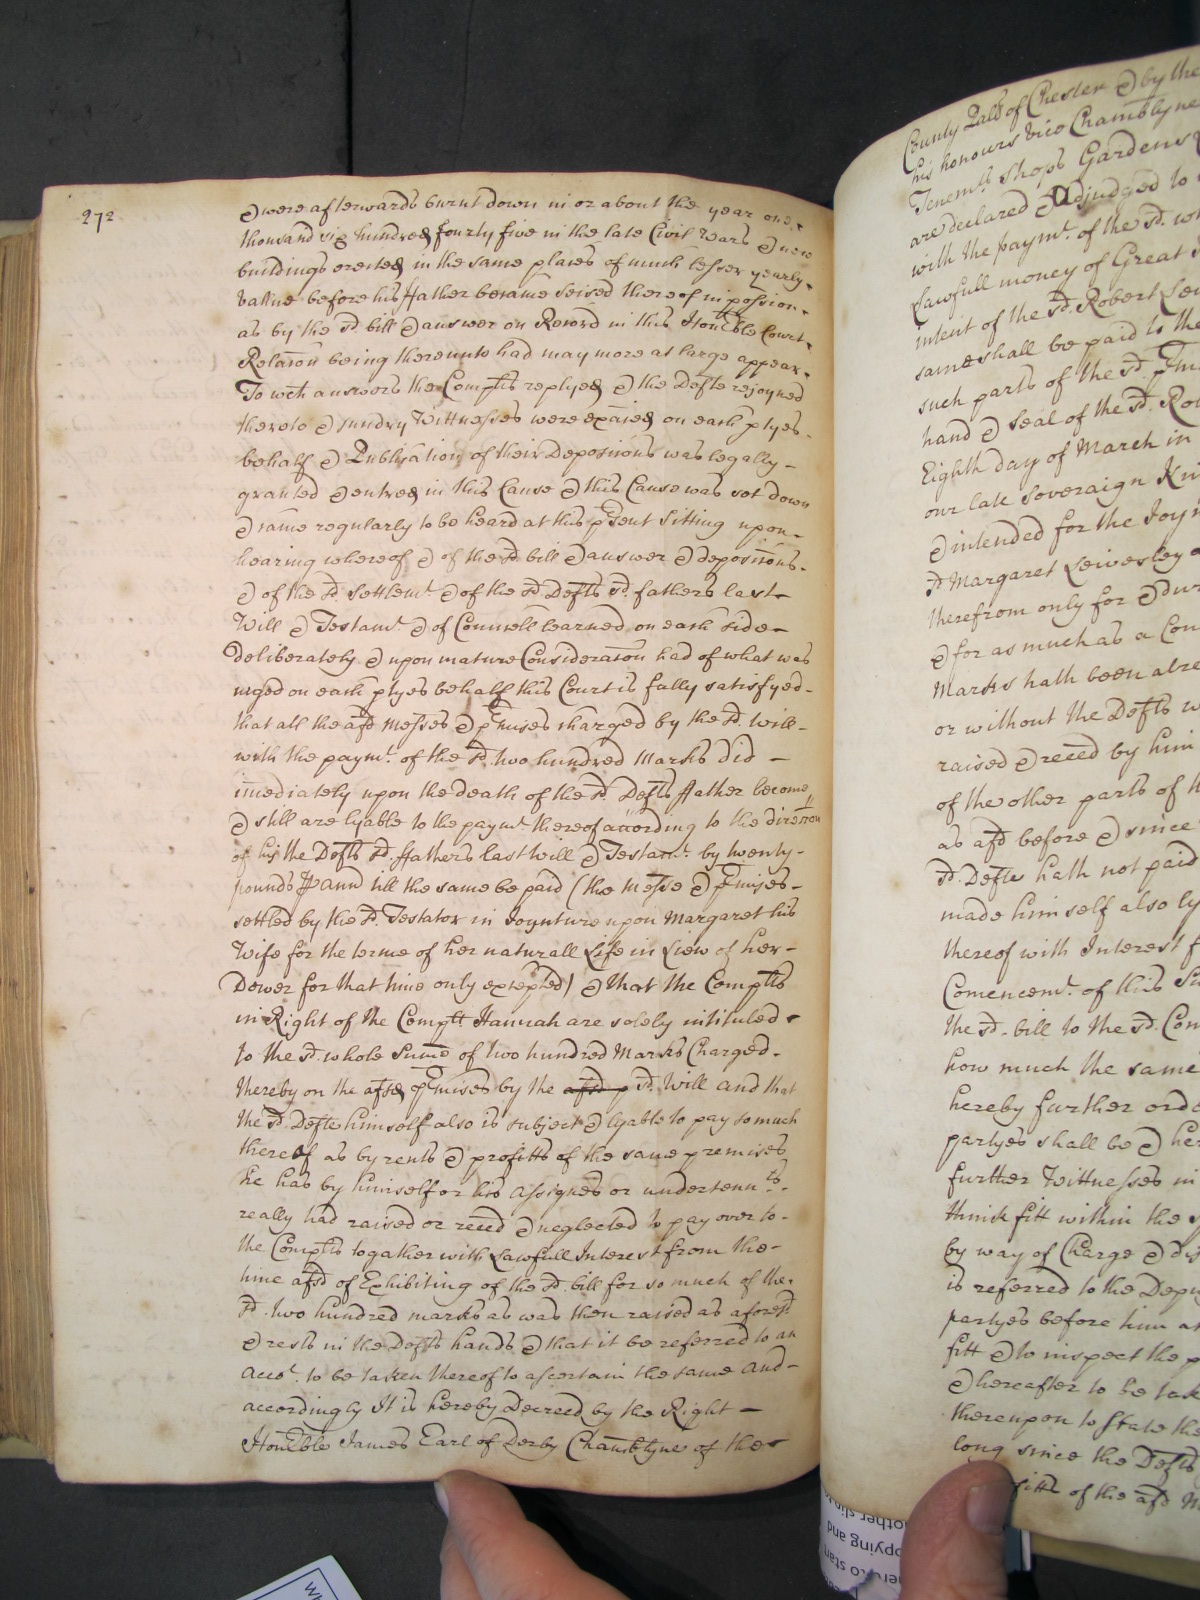 272
& were afterwards burnt down in or about the year one
thousand six hundred fourty five in the late Civil Wars & new
buildings erected in the same places of much lesser yearly
vallue before his ffather became seised thereof in possion
as by the sd. bill & answer on Record in this Honoble Court
Relacon being thereunto had may more at large appear
To wch answers the Complts replyed & the Defte rejoyned
thereto & sundry Wittnesses were exãied on each ptyes
behalf & Publication of their Depositions was legally
granted & entred in this Cause & this Cause was set down
& came regularly to be heard at this psent Sitting upon
hearing whereof & of the sd. bill & answer & depositons
& of the sd. settlemt. & of the sd. Defts sd. fathers last
Will & Testamt. & of Councell learned on each side
Deliberately & upon mature Consideraton had of what was
urged on each ptyes behalf this Court is fully satisfyed
that all the afsd messes & pmises charged by the sd. Will
with the paymt. of the sd. two hundred Marks did
imediately upon the death of the sd. Defts ffather become
& still are lyable to the paymt. thereof according to the direction
of his the Defts sd. ffathers last will & Testamt. by twenty
pounds p Ann till the same be paid (the Messe & pmises
settled by the sd. Testator in Joynture upon Margaret his
Wife for the terme of her naturall Life in Liew of her
Dower for that time only excepted) & that the Complts
in Right of the Complt Hannah are solely intituled
to the sd. whole Sume of two hundred Marks Charged
thereby on the afsd pmises by the afsd p sd. Will and that
the sd. Defte himself also is subject & lyable to pay so much
thereof as by rents & profitts of the same premises
he has by himself or his Assignes or undertennts.
really had raised or reced & neglected to pay over to
the Complts togather with Lawfull Interest from the
time afsd of Exhibiting of the sd. bill for so much of the
sd. two hundred marks as was then raised as aforesd.
& rests in the Defts hands & that it be referred to an
Acct. to be taken thereof to ascertain the same and
accordingly It is hereby Decreed by the Right
Honoble James Earl of Derby Chamblyne of the
County Palt of Chester & by the
his honours Vice Chamblyne
Tenemts. Shops Gardens
are declared & Adjudged to
with the paymt. of the sd.
Lawfull money of Great
intent of the sd. Robert
same shall be paid to the
such parts of the sd.
hand & seal of the sd.
Eighth day of March in
our late Soveraign
& intended for the
sd. Margaret Leivesley
therefrom only for &
& for as much as a
Marks hath been
or without the Defts
raised & reced by him
of the other parts of
as afsd before & since
sd. Defte hath not paid
made him self also
thereof with Interest
Comencemt. of this
the sd. bill to the sd.
how much the same
hereby further
partyes shall be &
further Wittnesses in
think fitt within the
by way of Charge &
is referred to the
partyes before him
fitt & to inspect the
& hereafter to be
thereupon to State the
long since the Defts
of the afsd